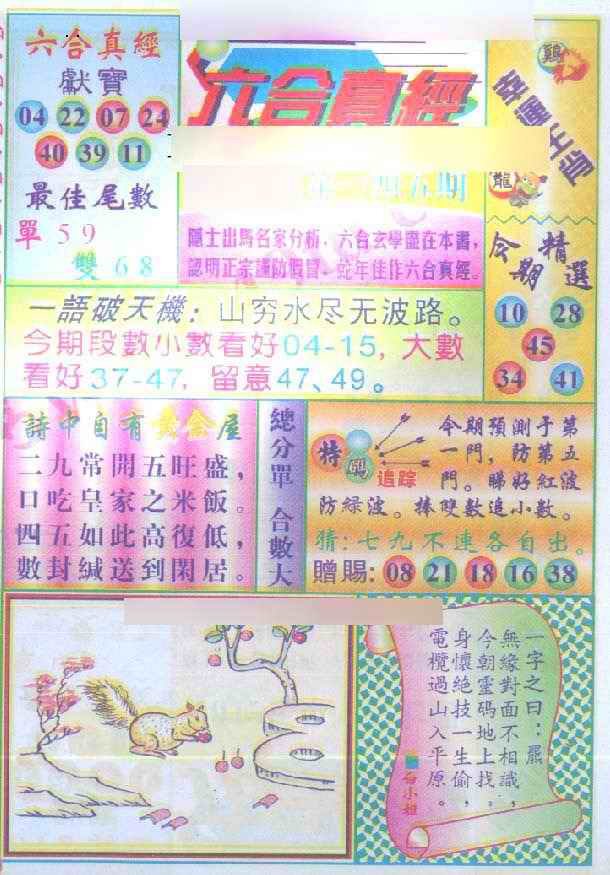 六合真經
獻寶
04 22 07 24
40 39 11
最佳尾數
單 59
雙 68
六合真經
四五期
隱士出馬名家分析，六合玄學盡在本書，
認明正宗謹防假冒，蛇年佳作六合真經。
鷄
龍
今期精選
10 28
45
34 41
一語破天機：山穷水尽无波路。
今期段數小數看好04-15，大數
看好37-47，留意47、49。
詩中自有黄金屋
二九常開五旺盛，
日吃皇家之米飯。
四五如此高復低，
數封緘送到閑居。
總分單 合數大
特碼
追踪
今期預測于第
一門，防第五
門。睇好紅波
防緑波。捧雙數追小數。
猜：七九不連各自出。
贈賜：08 21 18 16 38
一字之曰：羆
無緣對面不相識，
今朝靈碼地上找，
身懷絶技一生偷，
電欖過山入平原。
白小姐